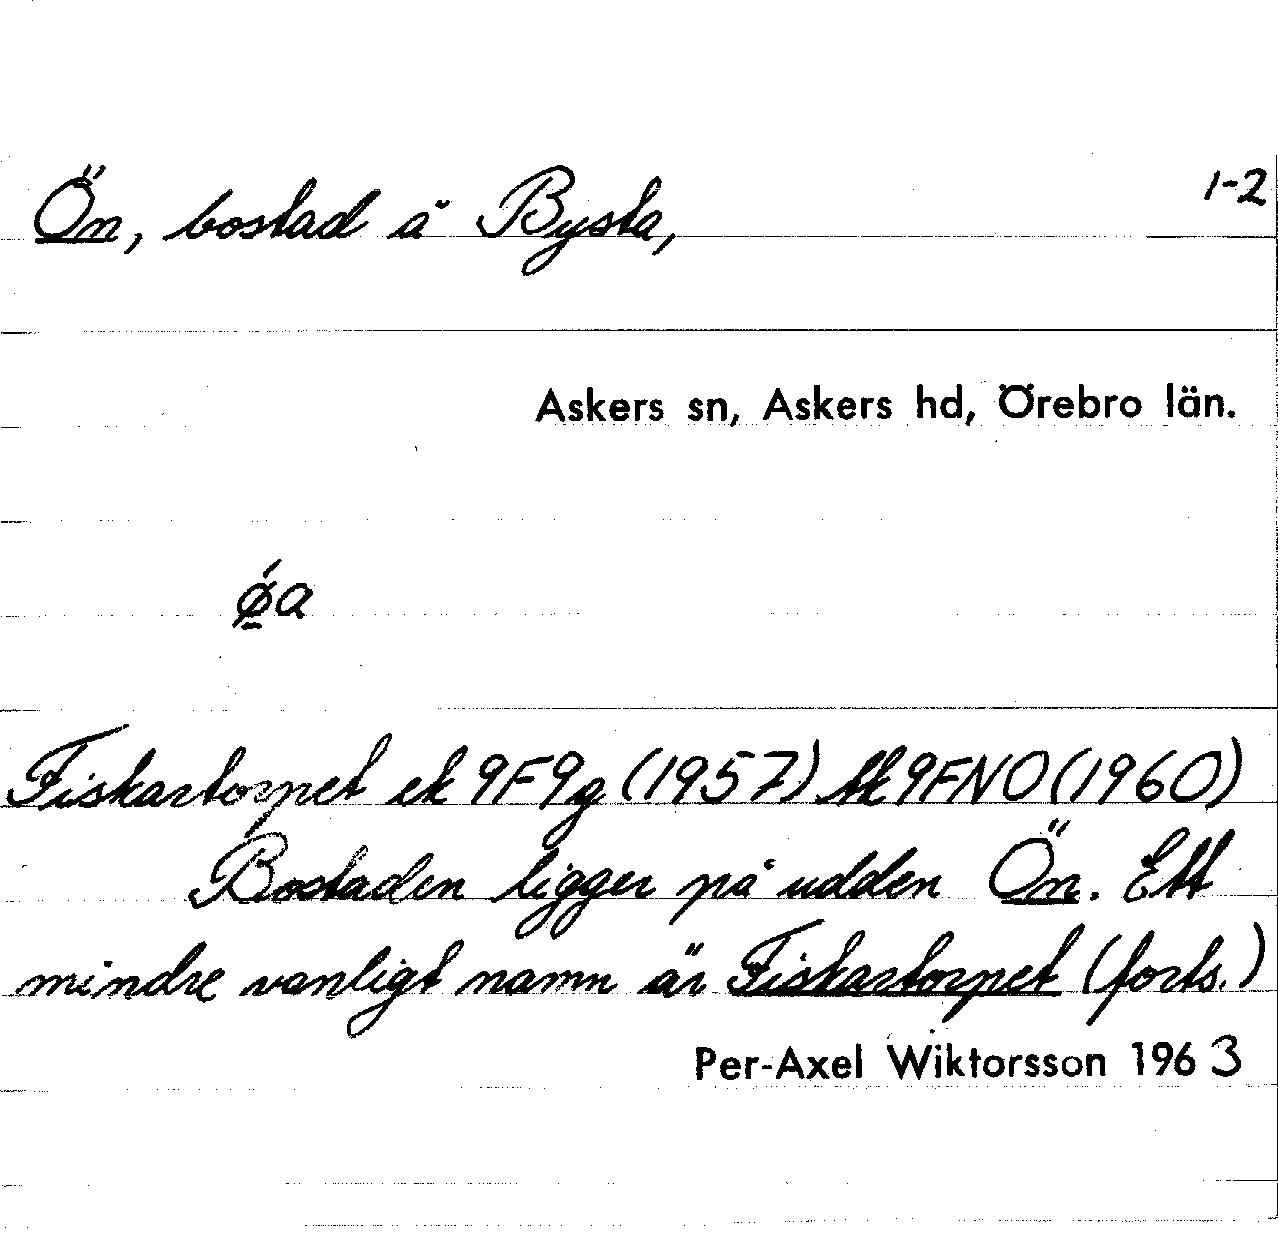 Ön, bostad å Bysta, 1-2
Askers sn, Askers hd, Örebro län.
ǿ̠a
Fiskartorpet ek 9F9g (1957) tk 9FNO (1960)
Bostaden ligger på udden Ön. Ett
mindre vanligt namn är Fiskartorpet (forts.)
Per-Axel Wiktorsson 1963